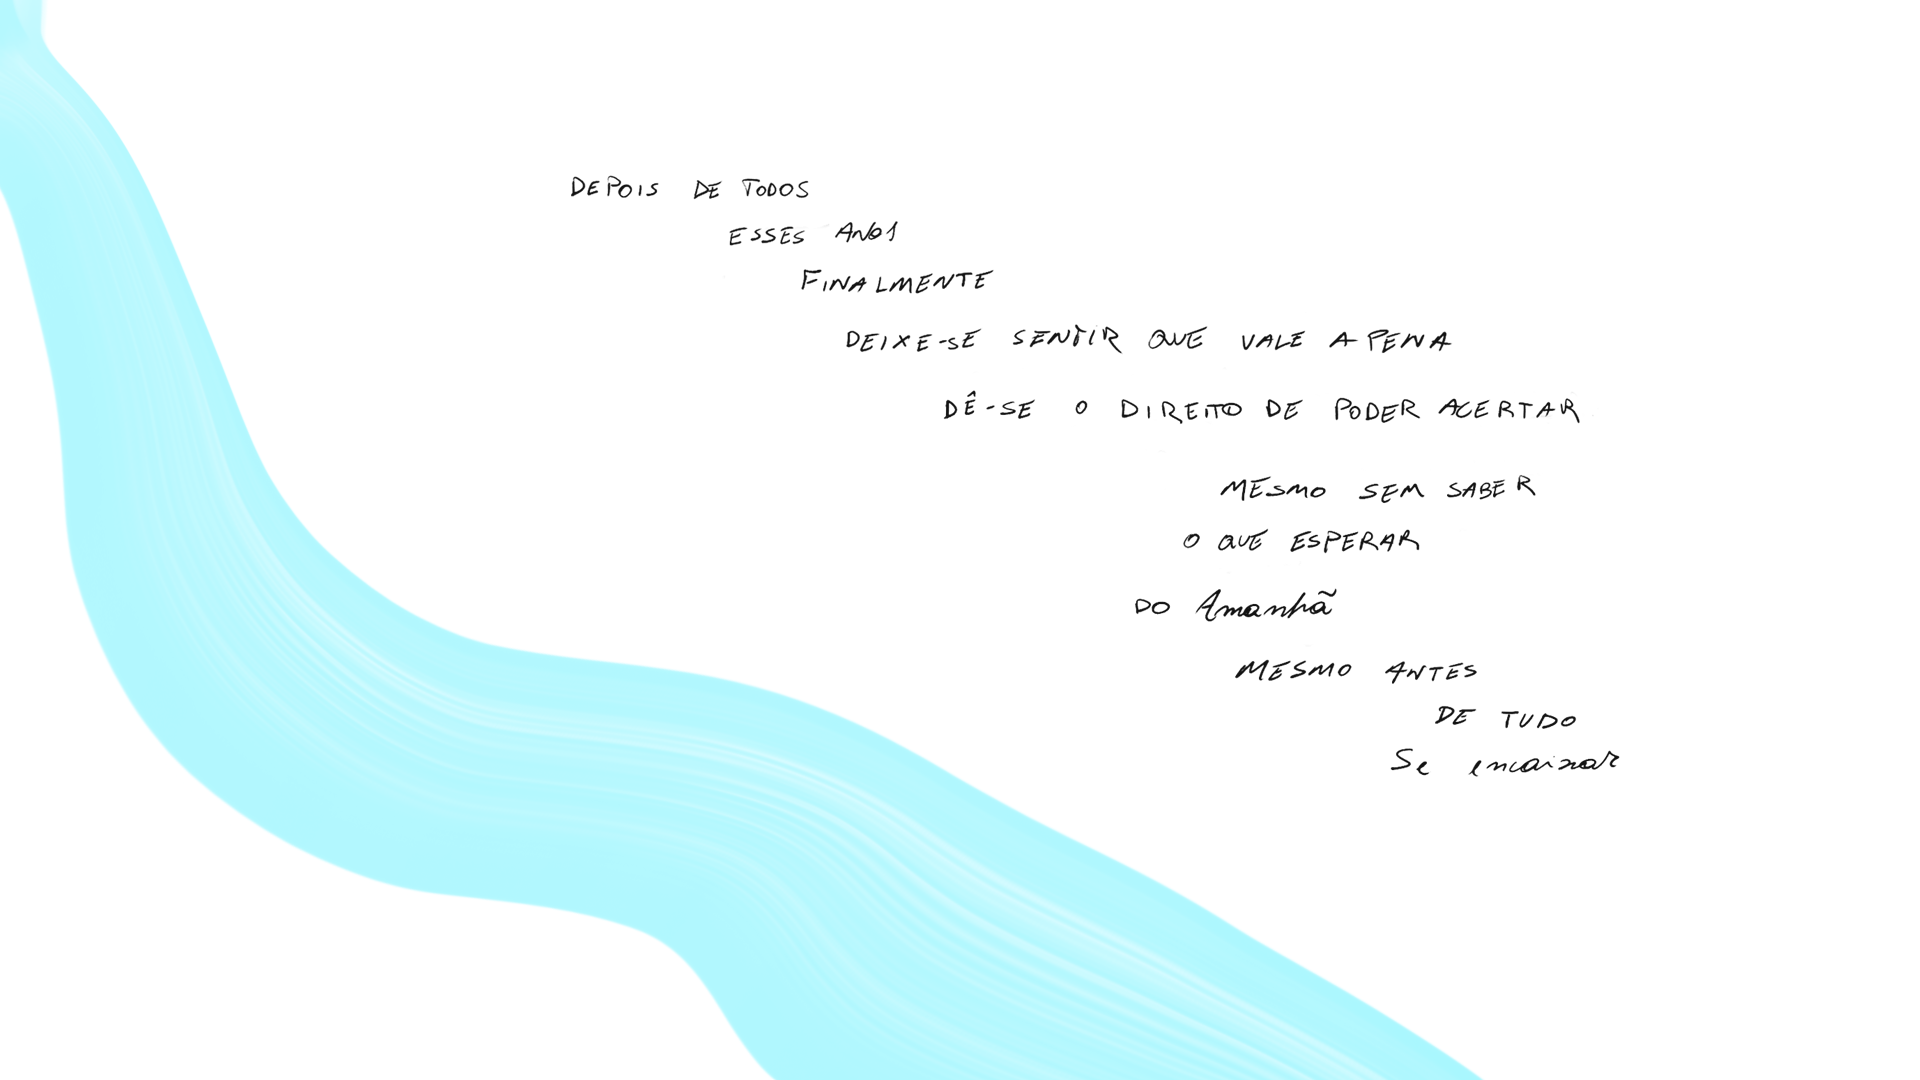 DEPOIS DE TODOS
ESSES ANOS
FINALMENTE
DEIXE-SE SENTIR QUE VALE A PENA
DÊ-SE O DIREITO DE PODER ACERTAR
MESMO SEM SABER
O QUE ESPERAR
DO Amanhã
MESMO ANTES
DE TUDO
Se encaixar